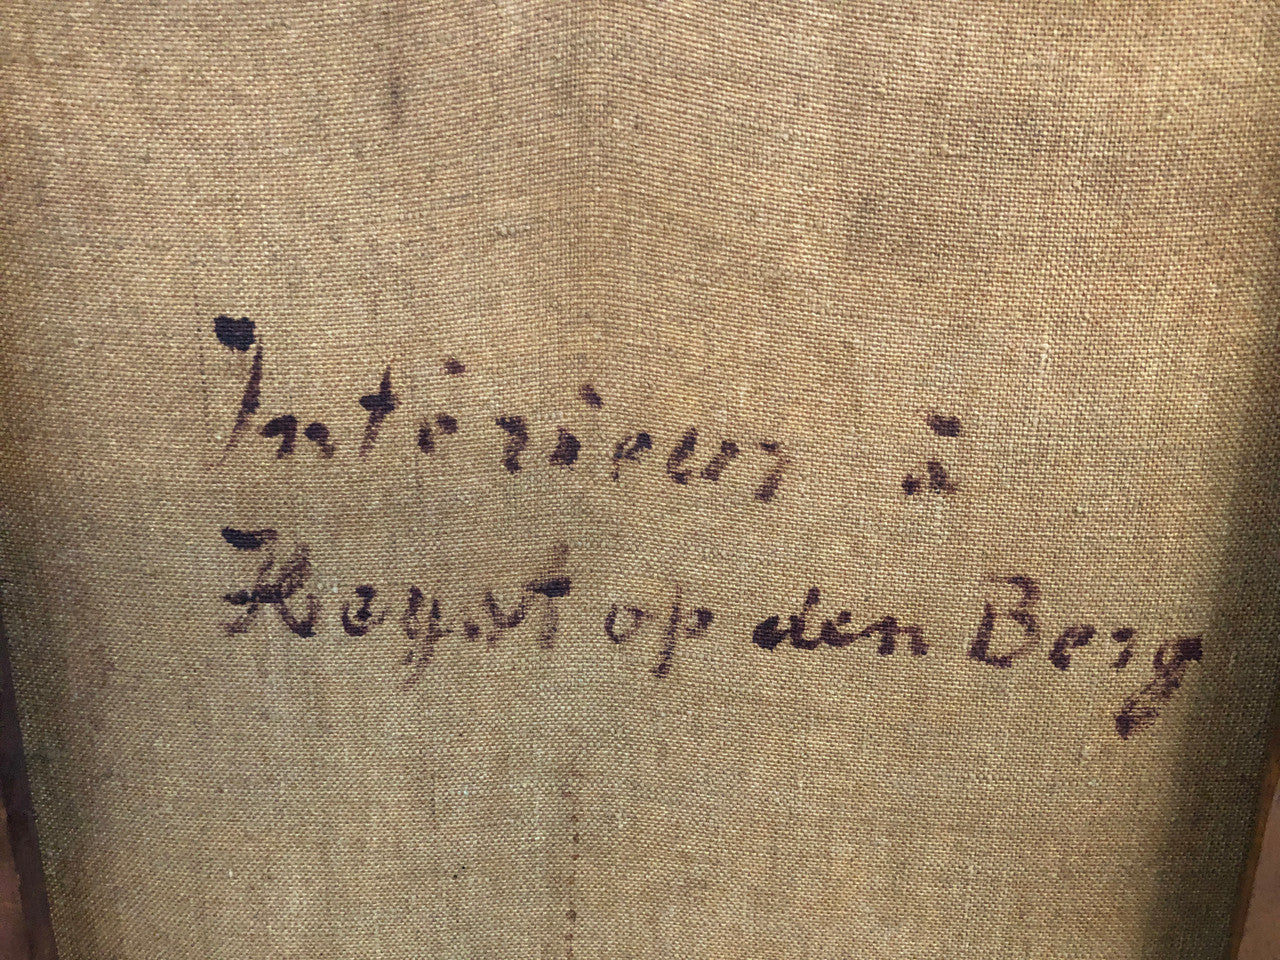 Intérieur à
Heyst op den Berg